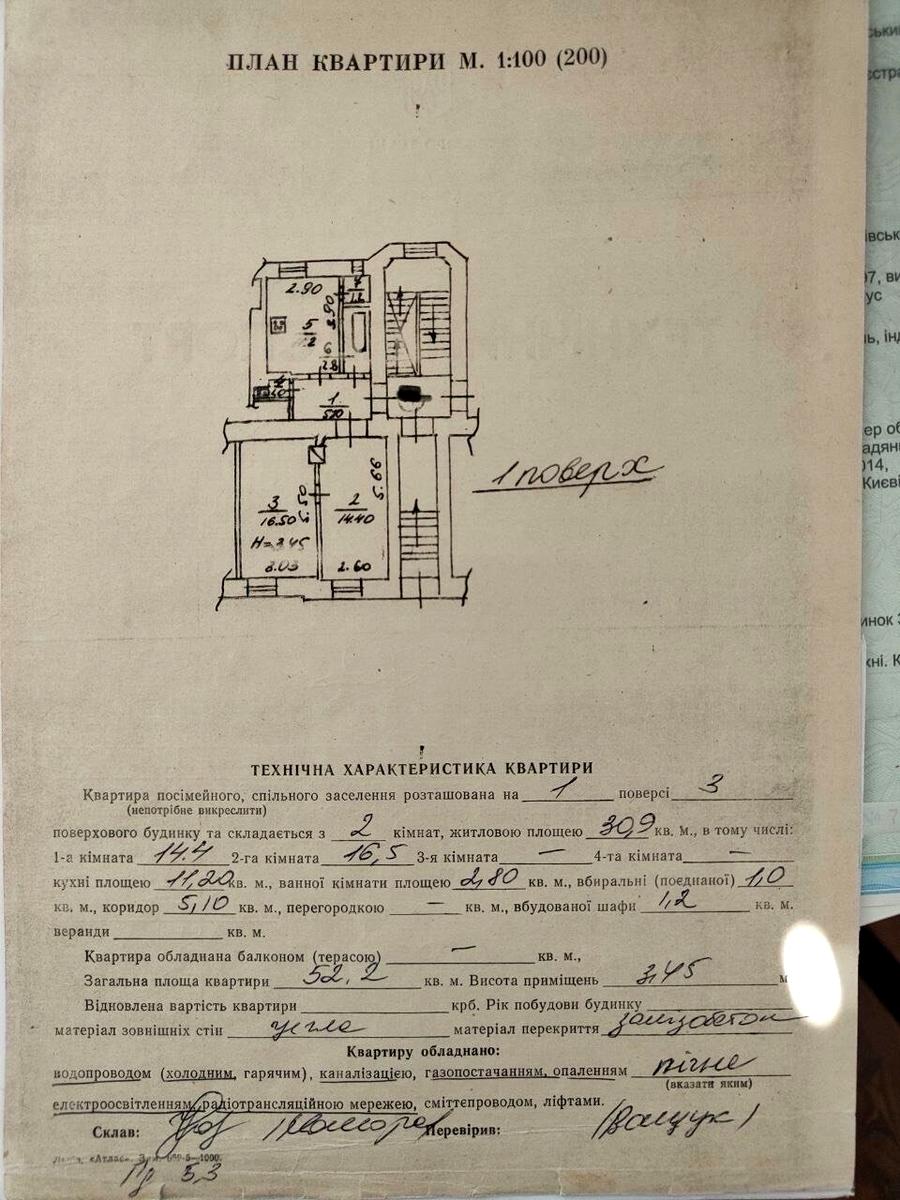 ПЛАН КВАРТИРИ М. 1:100 (200)
2.90
3.90
7
1.2
5
6
2.8
4
1
5.10
1 поверх
5.66
3
16.50
5.50
2
14.40
H=3.45
3.03
2.60
ТЕХНІЧНА ХАРАКТЕРИСТИКА КВАРТИРИ
Квартира посімейного, спільного заселення розташована на 1 поверсі 3
(непотрібне викреслити)
поверхового будинку та складається з 2 кімнат, житловою площею 30,9 кв. м., в тому числі:
1-а кімната 14.4 2-га кімната 16,5 3-я кімната — 4-та кімната —
кухні площею 11,20 кв. м., ванної кімнати площею 2,80 кв. м., вбиральні (поєднаної) 1,0
кв. м., коридор 5,10 кв. м., перегородкою — кв. м., вбудованої шафи 1,2 кв. м.
веранди кв. м.
Квартира обладнана балконом (терасою) — кв. м.,
Загальна площа квартири 52,2 кв. м. Висота приміщень 3,45 м
Відновлена вартість квартири крб. Рік побудови будинку
матеріал зовнішніх стін цегла матеріал перекриття залізобетон
Квартиру обладнано:
водопроводом (холодним, гарячим), каналізацією, газопостачанням, опаленням пічне
(вказати яким)
електроосвітленням, радіотрансляційною мережею, сміттєпроводом, ліфтами.
Склав: Перевірив: (Ващук)
«Атлас». 1000.
53